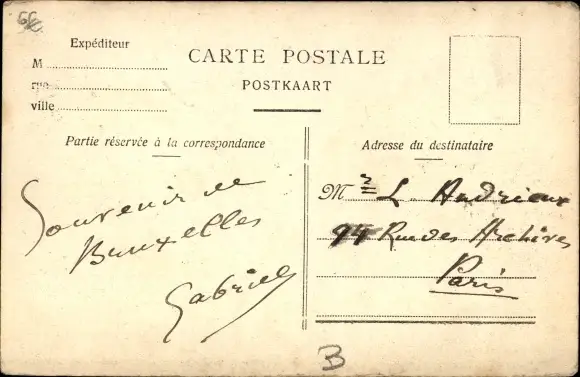 Expéditeur
M
rue
ville
CARTE POSTALE
POSTKAART
Partie réservée à la correspondance
Souvenir de
Bruxelles
Gabriel
Adresse du destinataire
Mr L. Andrieux
94 Rue des Archives
Paris
B